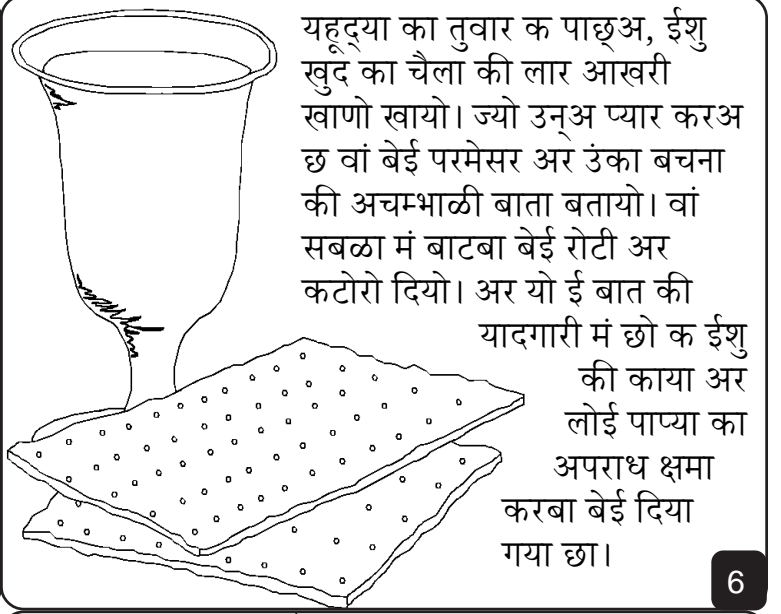 यहूद्‌या का तुवार क पाछ्अ, ईशु
खुद का चैला की लार आखरी
खाणो खायो। ज्यो उन्अ प्यार करअ
छ वां बेई परमेसर अर उंका बचना
की अचम्भाळी बाता बतायो। वां
सबळा मं बाटबा बेई रोटी अर
कटोरो दियो। अर यो ई बात की
यादगारी मं छो क ईशु
की काया अर
लोई पाप्या का
अपराध क्षमा
करबा बेई दिया
गया छा।
6